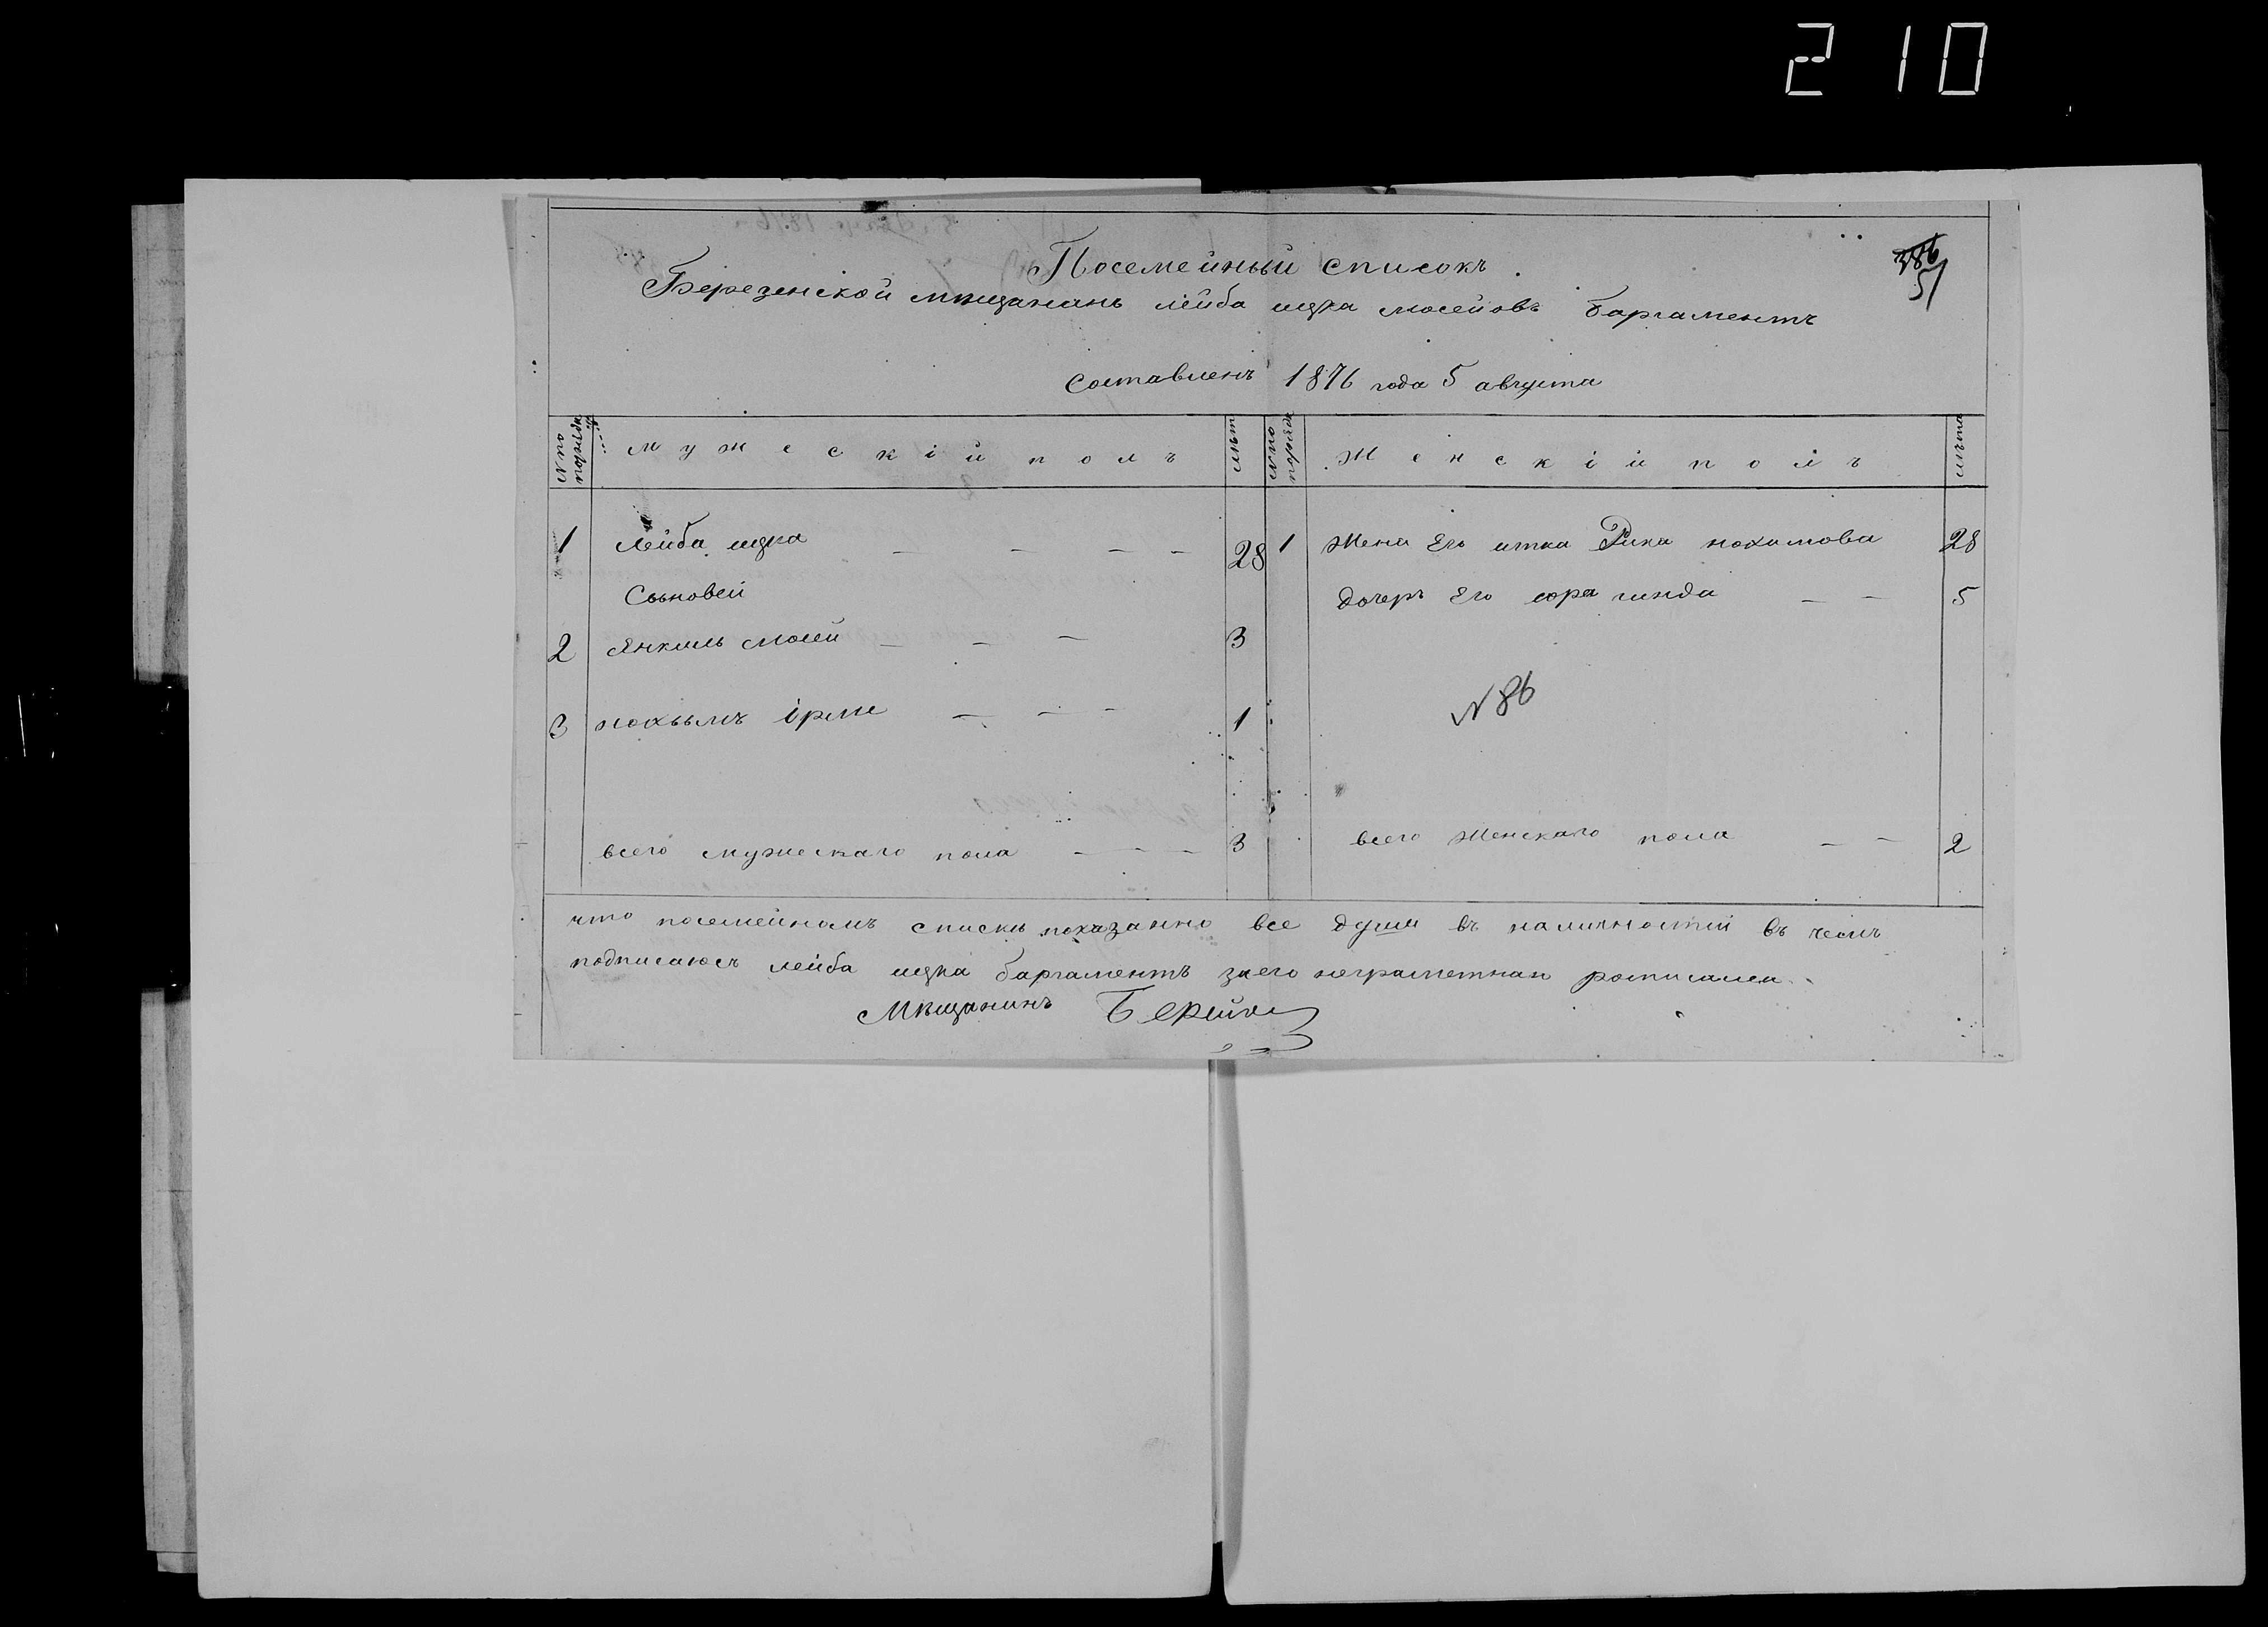 210
386
51
Посемейный списокъ.
Березенской мѣщанань лейба ицка мосейовъ баргаментъ
Составленъ 1876 года 5 августа
№ по порядку
мужескій полъ
лѣтъ
№ по порядк
Женскій полъ
лѣта
1 Лейба ицка — — — — 28
1 Жена Его итка Рика нохимова 28
Сыновей
дочеръ Его сора гинда — — 5
2 Янкиль мосей — — — 3
3 нохымъ — — — 1
№ 86
всего мужескаго пола — — — 3
всего Женскаго пола — — 2
что посемейномъ списки показанно все души въ наличностий въ чемъ
подписаюсъ лейба ицка баргаментъ заего
Мѣщанинъ